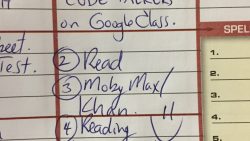 CODE TALKERS
on Google Class.
heet.
Test.
② Read
③ Moby Max/
Khan.
④ Reading
SPEL
1.
2.
3.
4.
5.